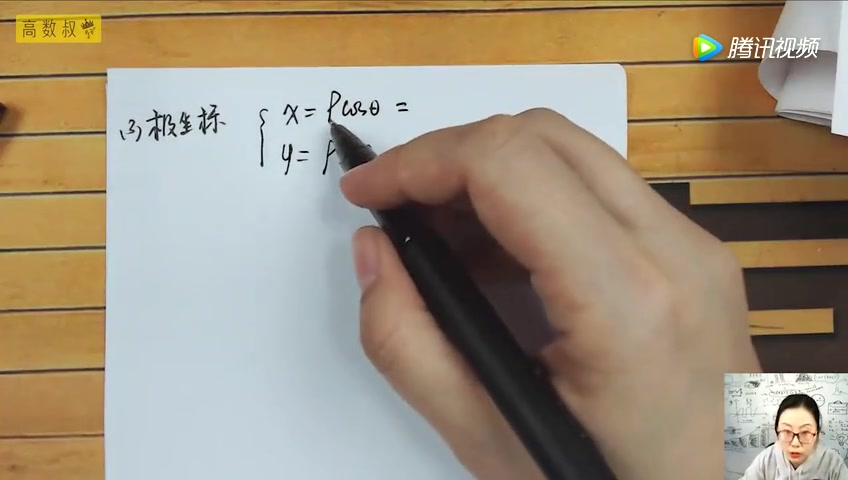 高数叔
腾讯视频
(3) 极坐标
x = ρcosθ =
y = ρ